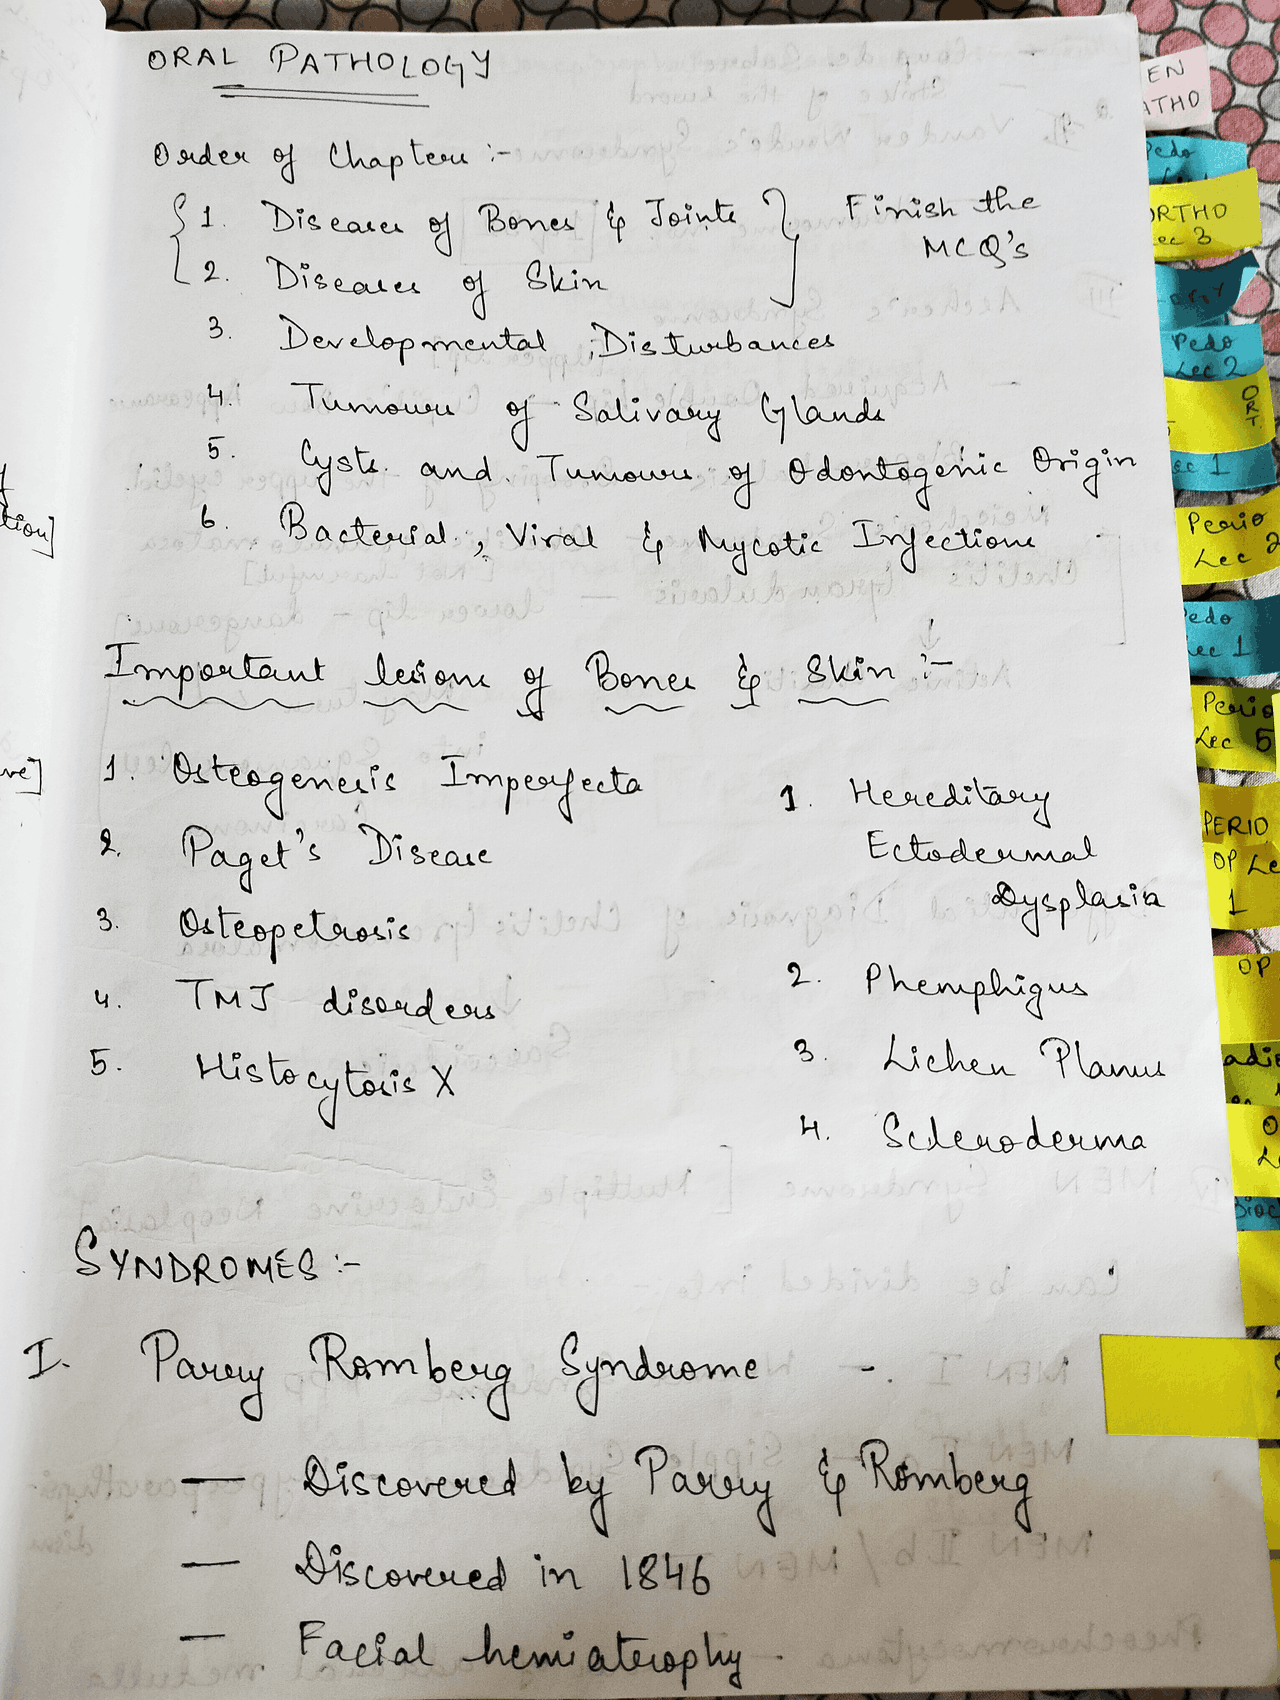 ORAL PATHOLOGY
Order of Chapters :-
1. Diseases of Bones & Joints
2. Diseases of Skin
Finish the
MCQ's
3. Developmental Disturbances
4. Tumours of Salivary Glands
5. Cysts and Tumours of Odontogenic Origin
6. Bacterial, Viral & Mycotic Infections
Important lesions of Bones & Skin :-
1. Osteogenesis Imperfecta
2. Paget's Disease
3. Osteopetrosis
4. TMJ disorders
5. Histocytosis X
1. Hereditary
Ectodermal
Dysplasia
2. Phemphigus
3. Lichen Planus
4. Scleroderma
SYNDROMES :-
I. Parry Romberg Syndrome -
— Discovered by Parry & Romberg
— Discovered in 1846
— Facial hemiatrophy
tion]
ve]
EN
ATHO
Pedo
ORTHO
Lec 3
Pedo
Lec 2
ORT
ec 1
Perio
Lec 2
edo
Lec 1
Perio
Lec 5
PERIO
OP Le
1
OP
adio
O
Le
Bioc